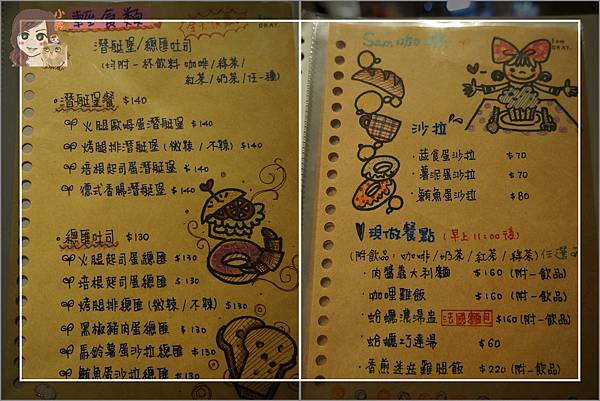 輕食類
潛艇堡/總匯吐司
(均附一杯飲料 咖啡/綠茶/
紅茶/奶茶/任一種)
潛艇堡餐 $140
火腿歐姆蛋潛艇堡 $140
烤腿排潛艇堡 (微辣/不辣) $140
培根起司蛋潛艇堡 $140
德式香腸潛艇堡 $140
總匯吐司 $130
火腿起司蛋總匯 $130
培根起司蛋總匯 $130
烤腿排總匯 (微辣/不辣) $130
黑椒豬肉蛋總匯 $130
馬鈴薯蛋沙拉總匯 $130
鮪魚蛋沙拉總匯 $130
Sam咖啡
I am
OKAY.
沙拉
·蔬食蛋沙拉 $70
·薯泥蛋沙拉 $70
·鮪魚蛋沙拉 $80
現做餐點 (早上11:00後)
(附飲品:咖啡/奶茶/紅茶/綠茶) 任選
·肉醬義大利麵 $160 (附一飲品)
·咖哩雞飯 $160 (附一飲品)
·蛤蠣濃湯盅 法國麵包 $160 (附一飲品)
·蛤蠣巧達湯 $60
·香煎迷迭雞腿飯 $220 (附一飲品)